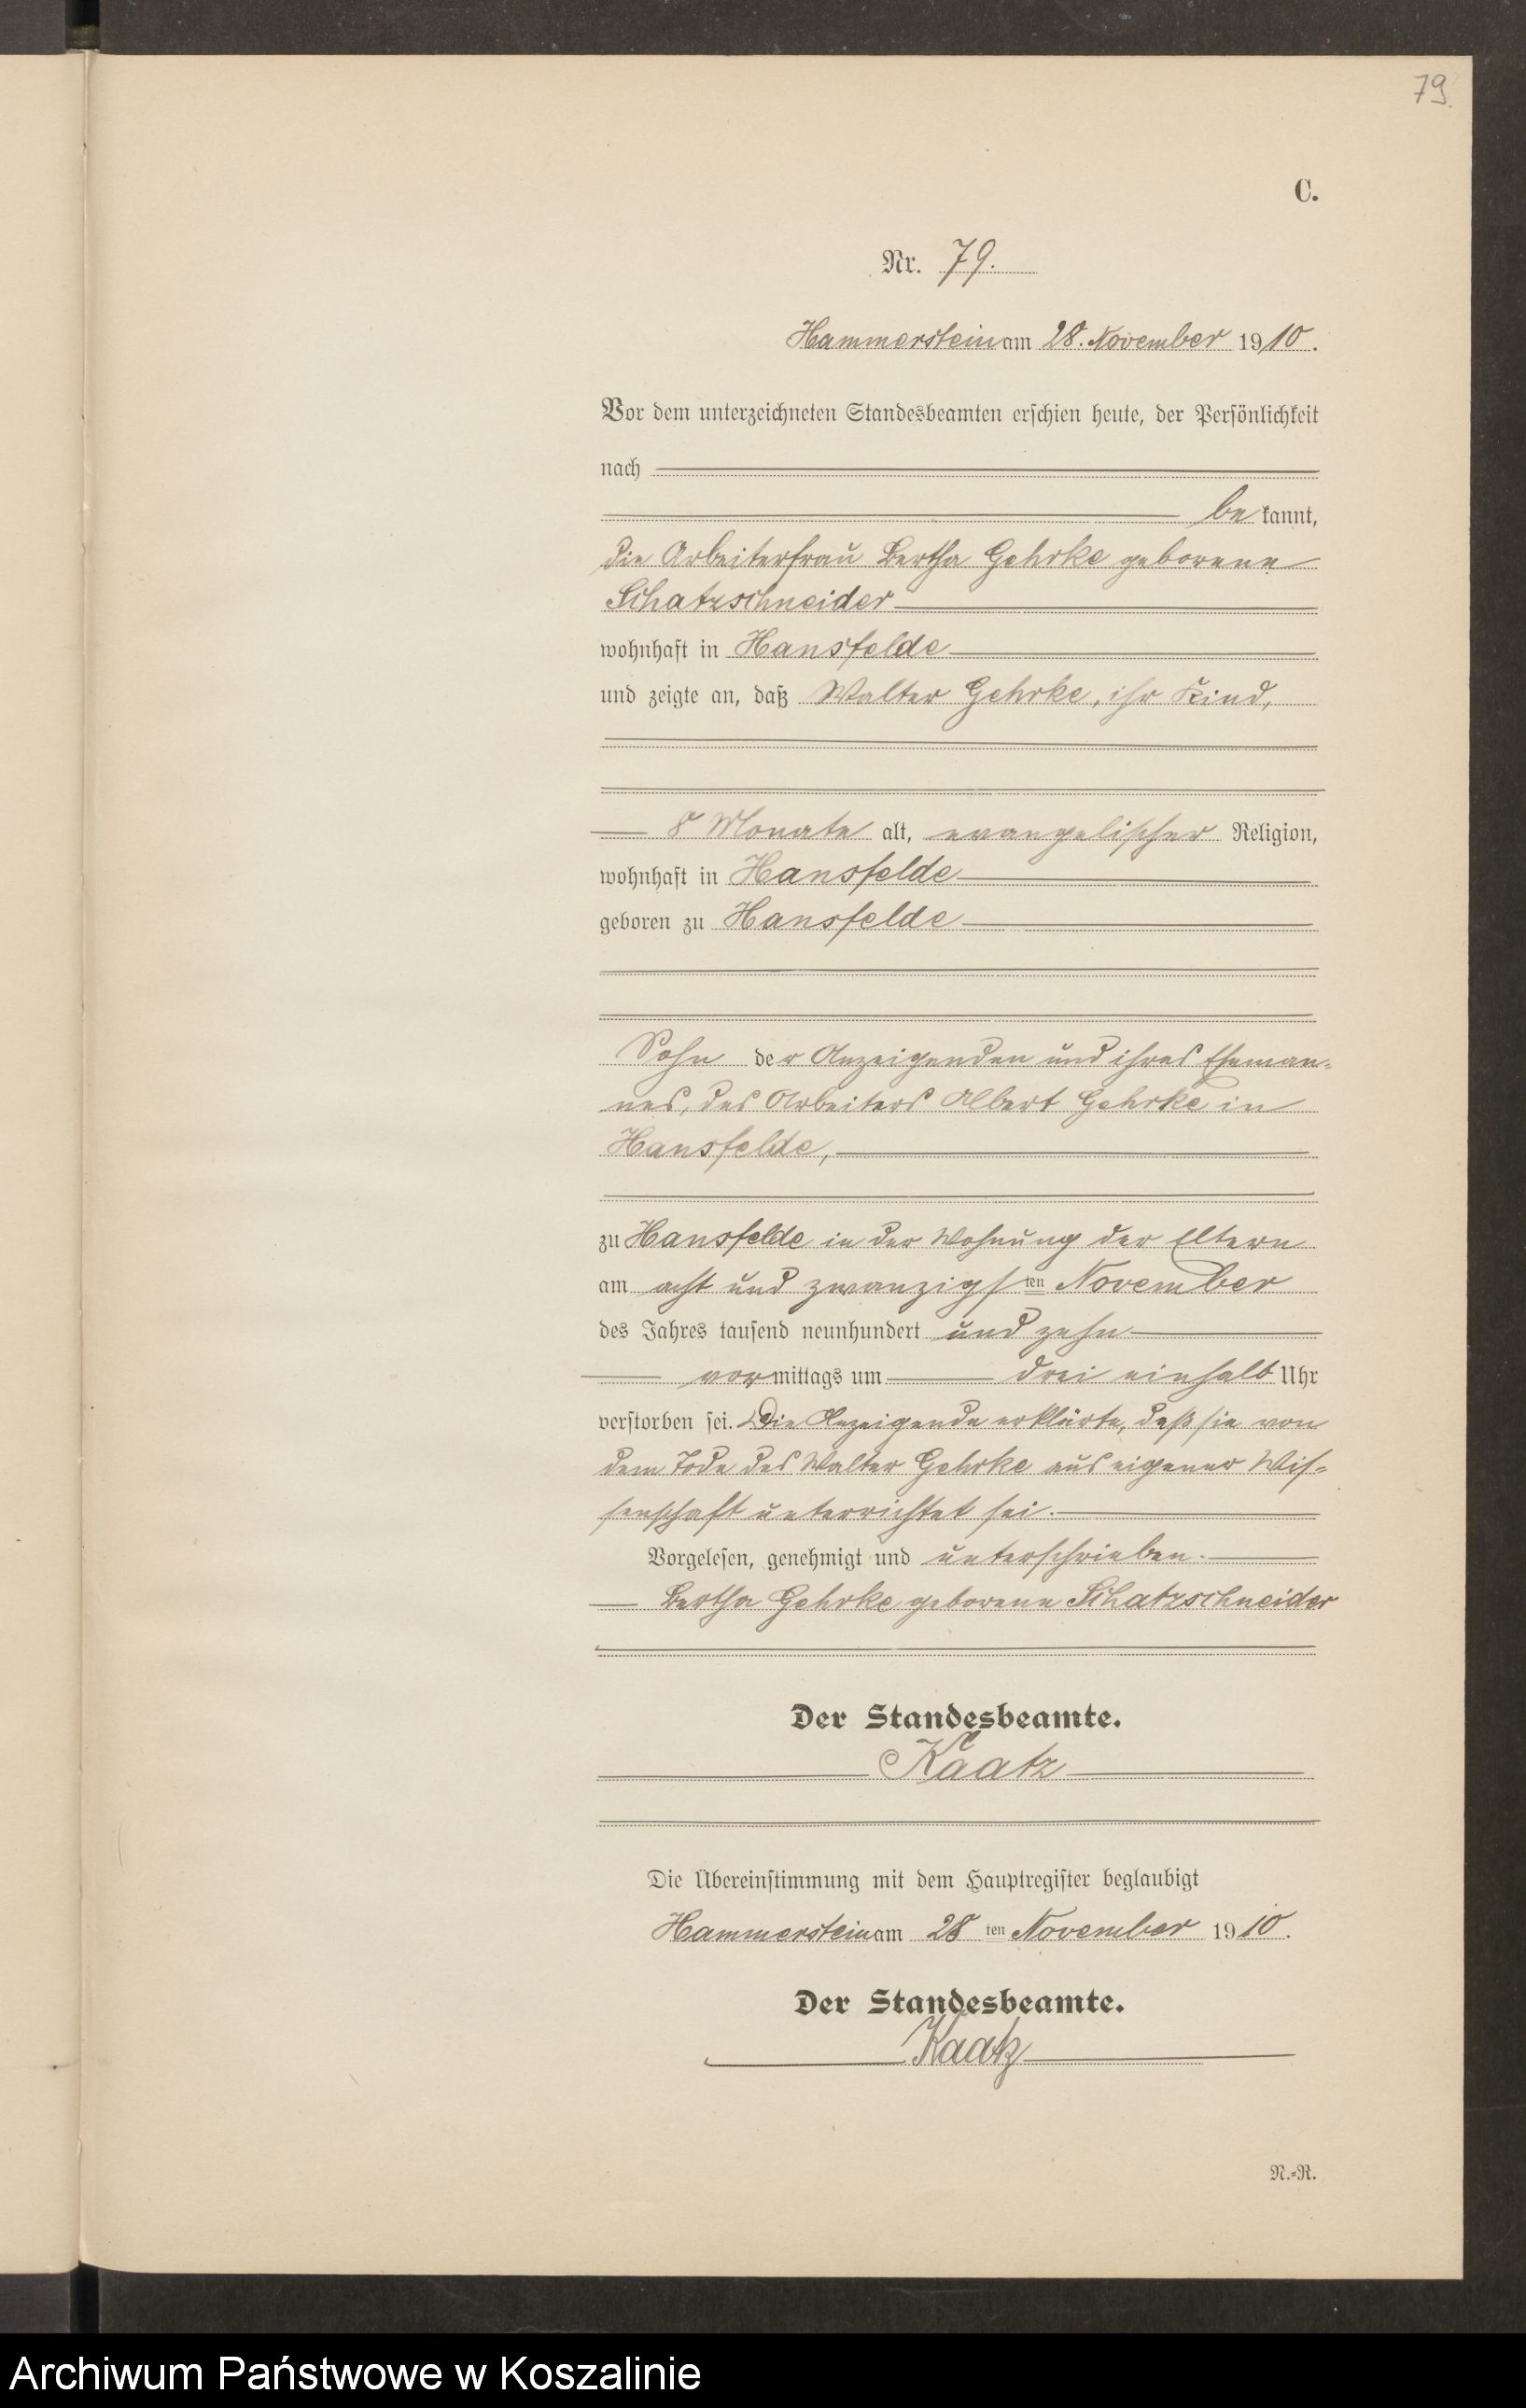 79.
C.
Nr. 79.
Hammerstein am 28. November 1910.
Vor dem unterzeichneten Standesbeamten erschien heute, der Persönlichkeit
nach
bekannt,
die Arbeiterfrau Bertha Gehrke geborene
Schatzschneider
wohnhaft in Hansfelde
und zeigte an, daß Walter Gehrke, ihr Kind,
8 Monate alt, evangelischer Religion,
wohnhaft in Hansfelde
geboren zu Hansfelde
Sohn der Anzeigenden und ihres Eheman-
nes, des Arbeiters Albert Gehrke in
Hansfelde,
zu Hansfelde in der Wohnung der Eltern
am acht und zwanzigsten November
des Jahres tausend neunhundert und zehn
vormittags um drei einhalb Uhr
verstorben sei. Die Anzeigende erklärte, daß sie von
dem Tode des Walter Gehrke aus eigener Wis-
senschaft unterrichtet sei.
Vorgelesen, genehmigt und unterschrieben.
Bertha Gehrke geborene Schatzschneider
Der Standesbeamte.
Kaatz
Die Übereinstimmung mit dem Hauptregister beglaubigt
Hammerstein am 28ten November 1910.
Der Standesbeamte.
Kaatz
N.-R.
Archiwum Państwowe w Koszalinie